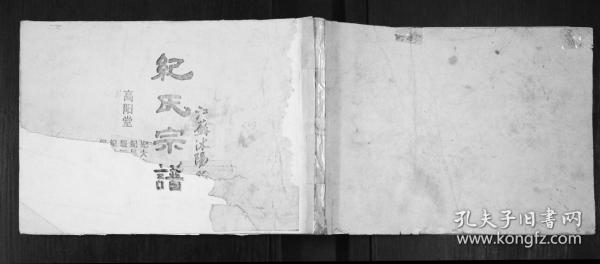 紀氏宗譜
高阳堂
江蘇沭陽
孔夫子旧书网
www.kongfz.com